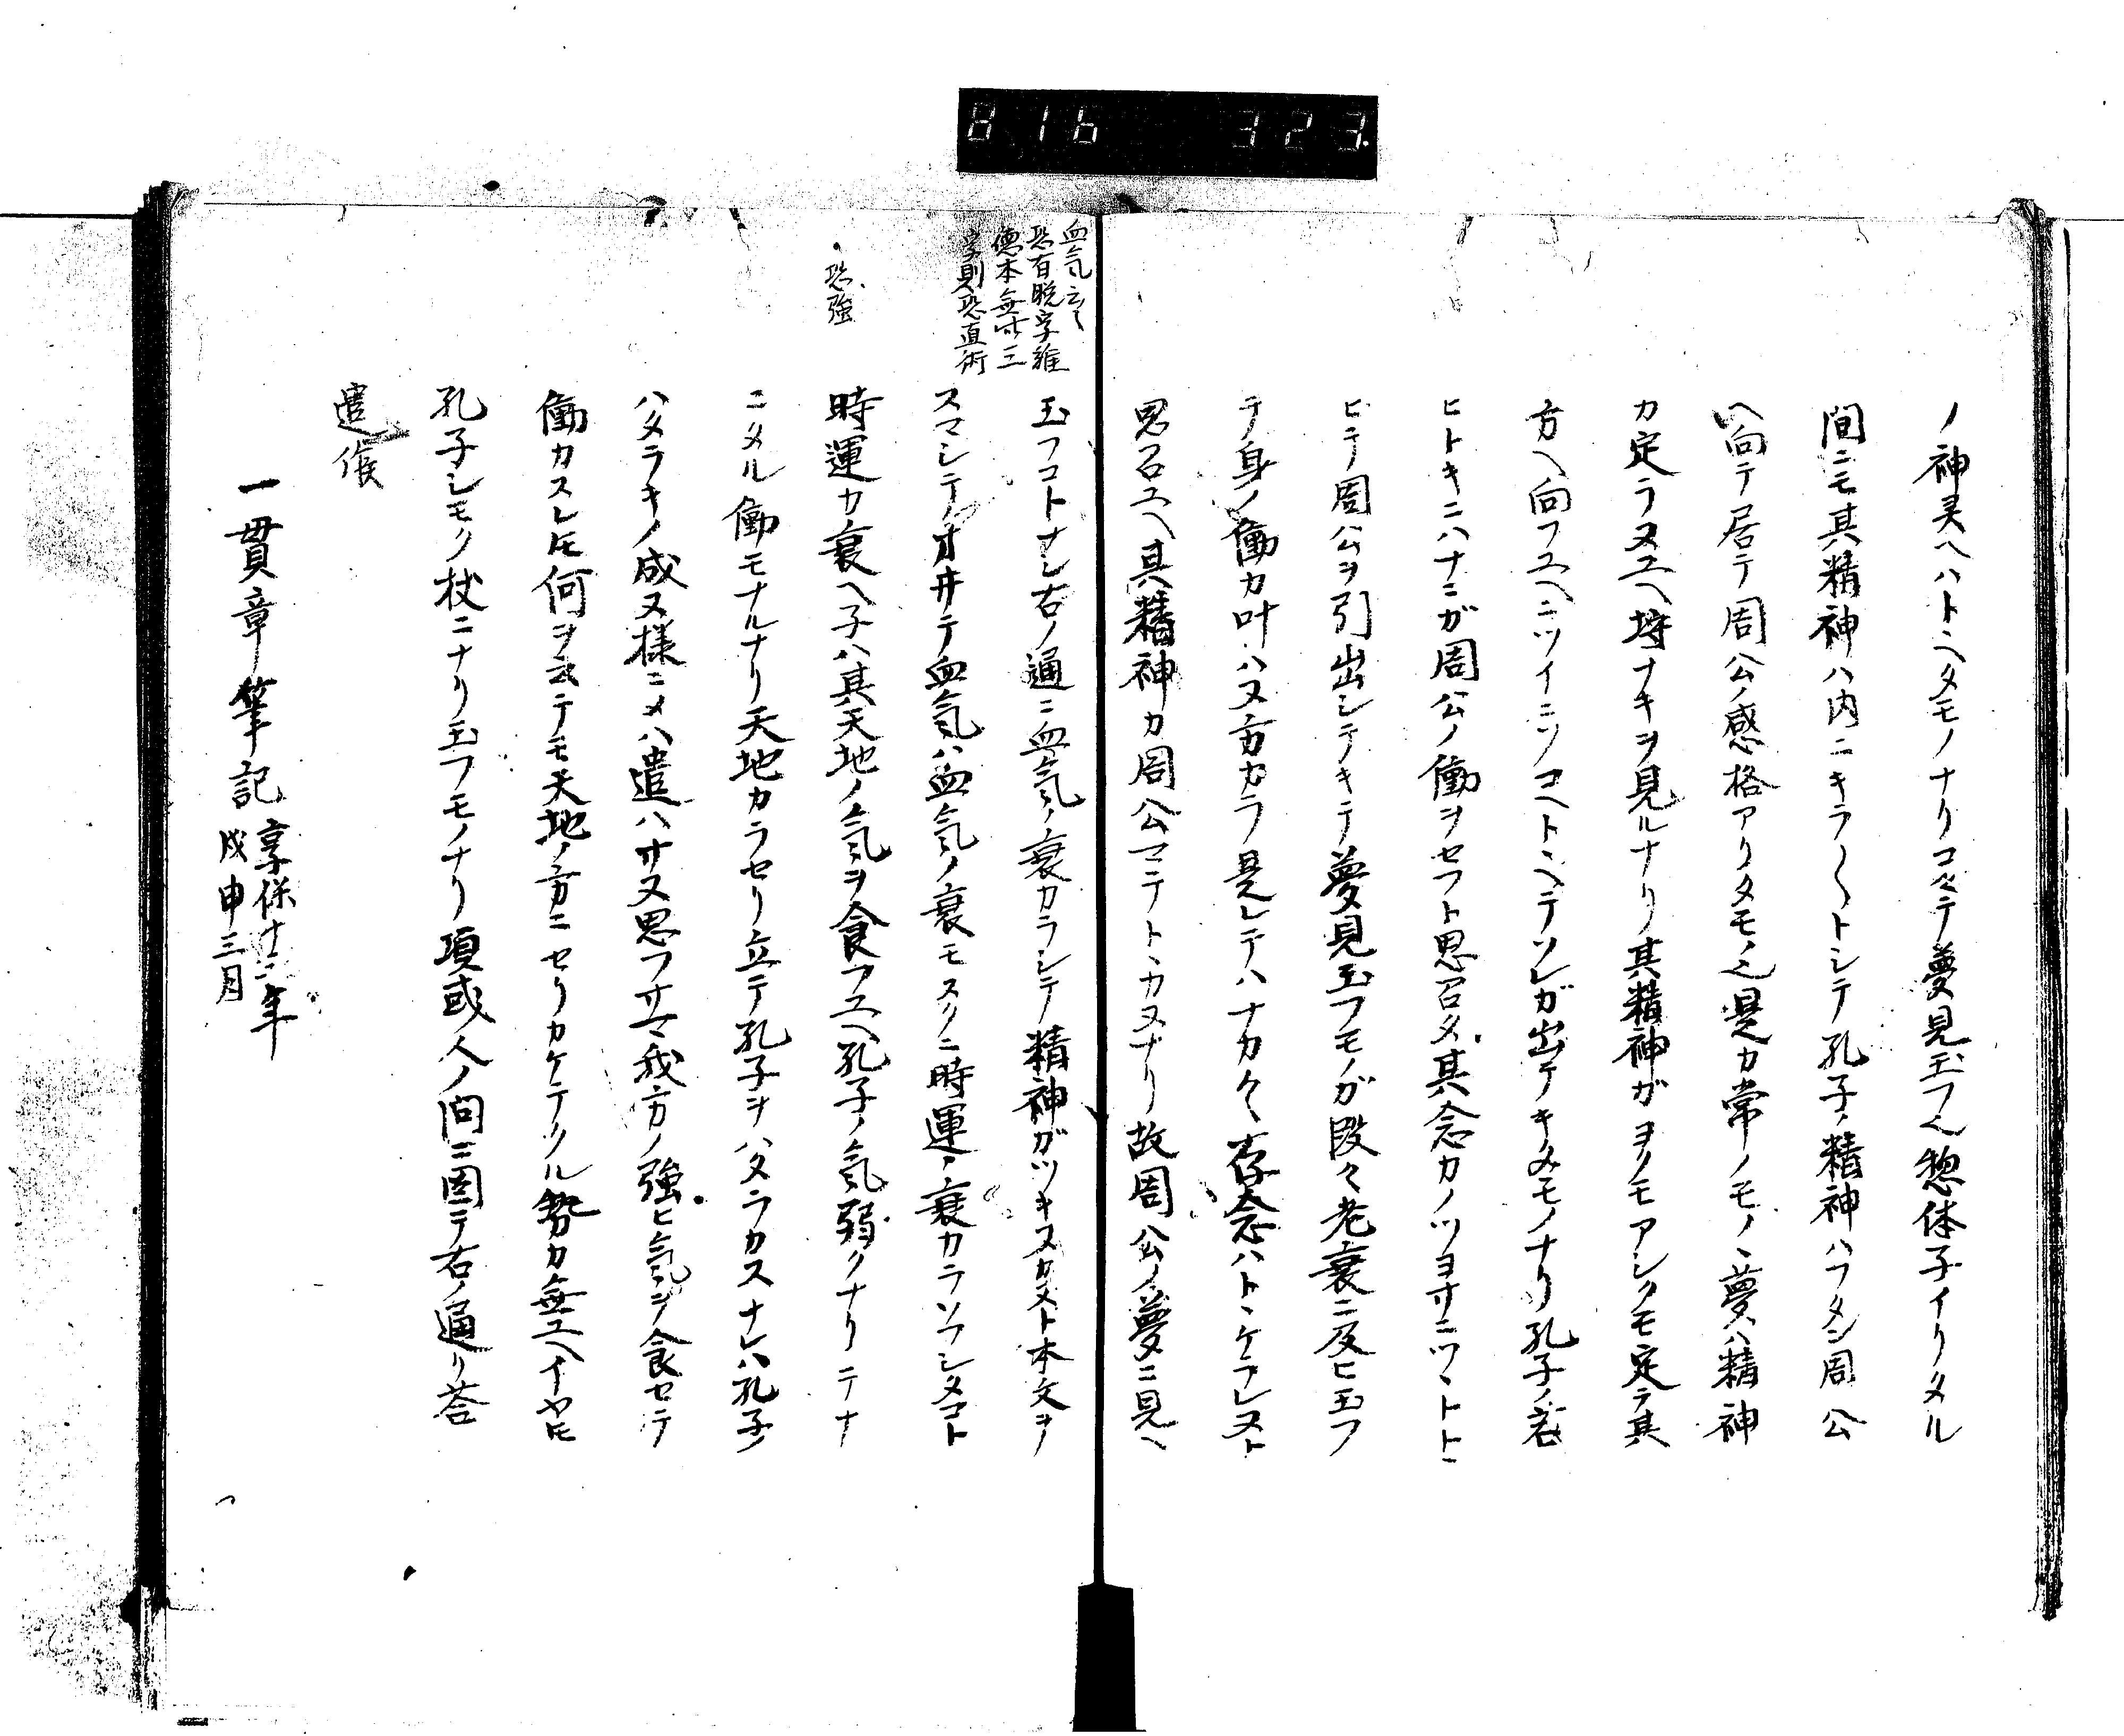 816 323
ノ神灵ヘハトヾヘタモノナリコヽテ夢見玉フ也惣体子イリタル
間ニモ其精神ハ内ニキラ〱トシテ孔子ノ精神ハフタン周公
ヘ向テ居テ周公ノ感格アリタモノ也是カ常ノモノヽ夢ハ精神
カ定ラヌユヘ埒ナキヲ見ルナリ其精神ガヨクモアシクモ定テ其
方ヘ向フユヘニツイニソコヘトヾヘテソレガ出テキタモノナリ孔子ノ若
ヒトキニハナニガ周公ノ働ヲセフト思召メ其念カノツヨサニツヽトトヾ
ヒテ周公ヲ引出シテキテ夢見玉フモノガ段々老衰ニ及ヒ玉フ
テ身ノ働カ叶ハヌ方カラ是レテハナカ〱存念ハトヽケラレヌト
思召ユヘ其精神カ周公マテトヽカヌナリ故周公ノ夢ニ見ヘ
血気云〻
恐有脱字雖
徳本無此三
字則恐直術
玉フコトナシ右ノ通ニ血気ノ衰カラシテ精神ガツキヌカヌト本文ヲ
スマシテオ井テ血気ハ血気ノ衰モスクニ時運ノ衰カラソフシタコト
恐強
時運カ衰ヘ子ハ其天地ノ気ヲ食フユヘ孔子ノ気弱クナリニテナ
ニメル働モナルナリ天地カラセリ立テ孔子ヲハタラカスナレハ孔子ノ
ハタラキノ成ヌ様ニメハ遣ハサヌ思フサマ我方ノ強ヒ気ヲ食セテ
働カスレ𪜈何ヲ云テモ天地ノ方ニセリカケテクル勢カ無ユヘイヤ𪜈
孔子シモク杖ニナリ玉フモノナリ項或人ノ問ニ因テ右ノ通リ荅
遣候
一貫章筆記 享保十三年
戊申三月